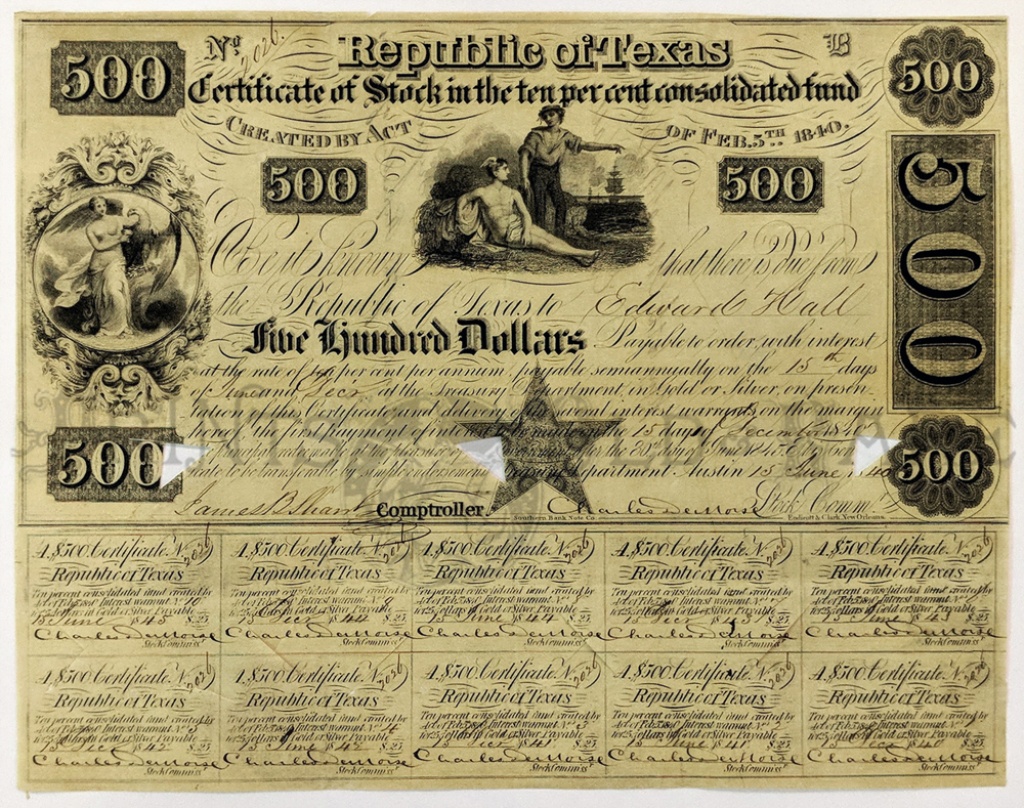 500
No. 2026.
Republic of Texas
B
500
Certificate of Stock in the ten per cent consolidated fund
CREATED BY ACT OF FEB. 5TH 1840.
500
500
500
Be it known that there is due from
the Republic of Texas to Edward Hall
Five Hundred Dollars Payable to order, with interest
at the rate of ten per cent per annum, payable semiannually on the 15th days
of June and Decr. at the Treasury Department, in Gold or Silver, on presen-
tation of this Certificate and delivery of the several interest warrants on the margin
hereof, the first Payment of interest to be made on the 15 day of December 1840
after the 30th day of June
rate to be transferable by simple endorsement Department Austin 15 June, 1840
500
500
James B Shaw Comptroller. Charles DeMorse Stock Commr.
Southern Bank Note Co.
Endicott & Clark, New Orleans
A $500 Certificate N. 2026
Republic of Texas
Ten per cent consolidated fund created by
Act of Feb. 5th Interest warrant No. 10
for 25 dollars of Gold or Silver Payable
15 June 45 $.25
Charles DeMorse
Stock Commiss.
A $500 Certificate N. 2026
Republic of Texas
Ten per cent consolidated fund created by
Act of Feb. 5th Interest warrant No. 9
for 25 dollars of Gold or Silver Payable
15 Decr 44 $.25
Charles DeMorse
Stock Commiss.
A $500 Certificate N. 2026
Republic of Texas
Ten per cent consolidated fund created by
Act of Feb. 5th Interest warrant No.
for 25 dollars of Gold or Silver Payable
15 June 44 $.25
Charles DeMorse
Stock Commiss.
A $500 Certificate N. 2026
Republic of Texas
Ten per cent consolidated fund created by
Act of Feb. 5th Interest warrant No.
for 25 dollars of Gold or Silver Payable
15 Decr 43 $.25
Charles DeMorse
Stock Commiss.
A $500 Certificate N. 2026
Republic of Texas
Ten per cent consolidated fund created by
Act of Feb. 5th Interest warrant No.
for 25 dollars of Gold or Silver Payable
15 June 43 $.25
Charles DeMorse
Stock Commiss.
A $500 Certificate N. 2026
Republic of Texas
Ten per cent consolidated fund created by
Act of Feb. 5th Interest warrant No. 5
for 25 dollars of Gold or Silver Payable
15 Decr 42 $.25
Charles DeMorse
Stock Commiss.
A $500 Certificate N. 2026
Republic of Texas
Ten per cent consolidated fund created by
Act of Feb. 5th Interest warrant No. 4
for 25 dollars of Gold or Silver Payable
15 June 42 $.25
Charles DeMorse
Stock Commiss.
A $500 Certificate N. 2026
Republic of Texas
Ten per cent consolidated fund created by
Act of Feb. 5th Interest warrant No. 3
for 25 dollars of Gold or Silver Payable
15 Decr 41 $.25
Charles DeMorse
Stock Commiss.
A $500 Certificate N. 2026
Republic of Texas
Ten per cent consolidated fund created by
Act of Feb. 5th Interest warrant No.
for 25 dollars of Gold or Silver Payable
15 June 41 $.25
Charles DeMorse
Stock Commiss.
A $500 Certificate N. 2026
Republic of Texas
Ten per cent consolidated fund created by
Act of Feb. 5th Interest warrant No.
for 25 dollars of Gold or Silver Payable
15 Decr 40 $.25
Charles DeMorse
Stock Commiss.